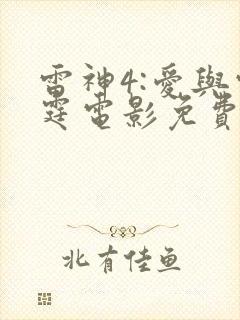 雷神4:愛與
霆電影免費
北有佳魚